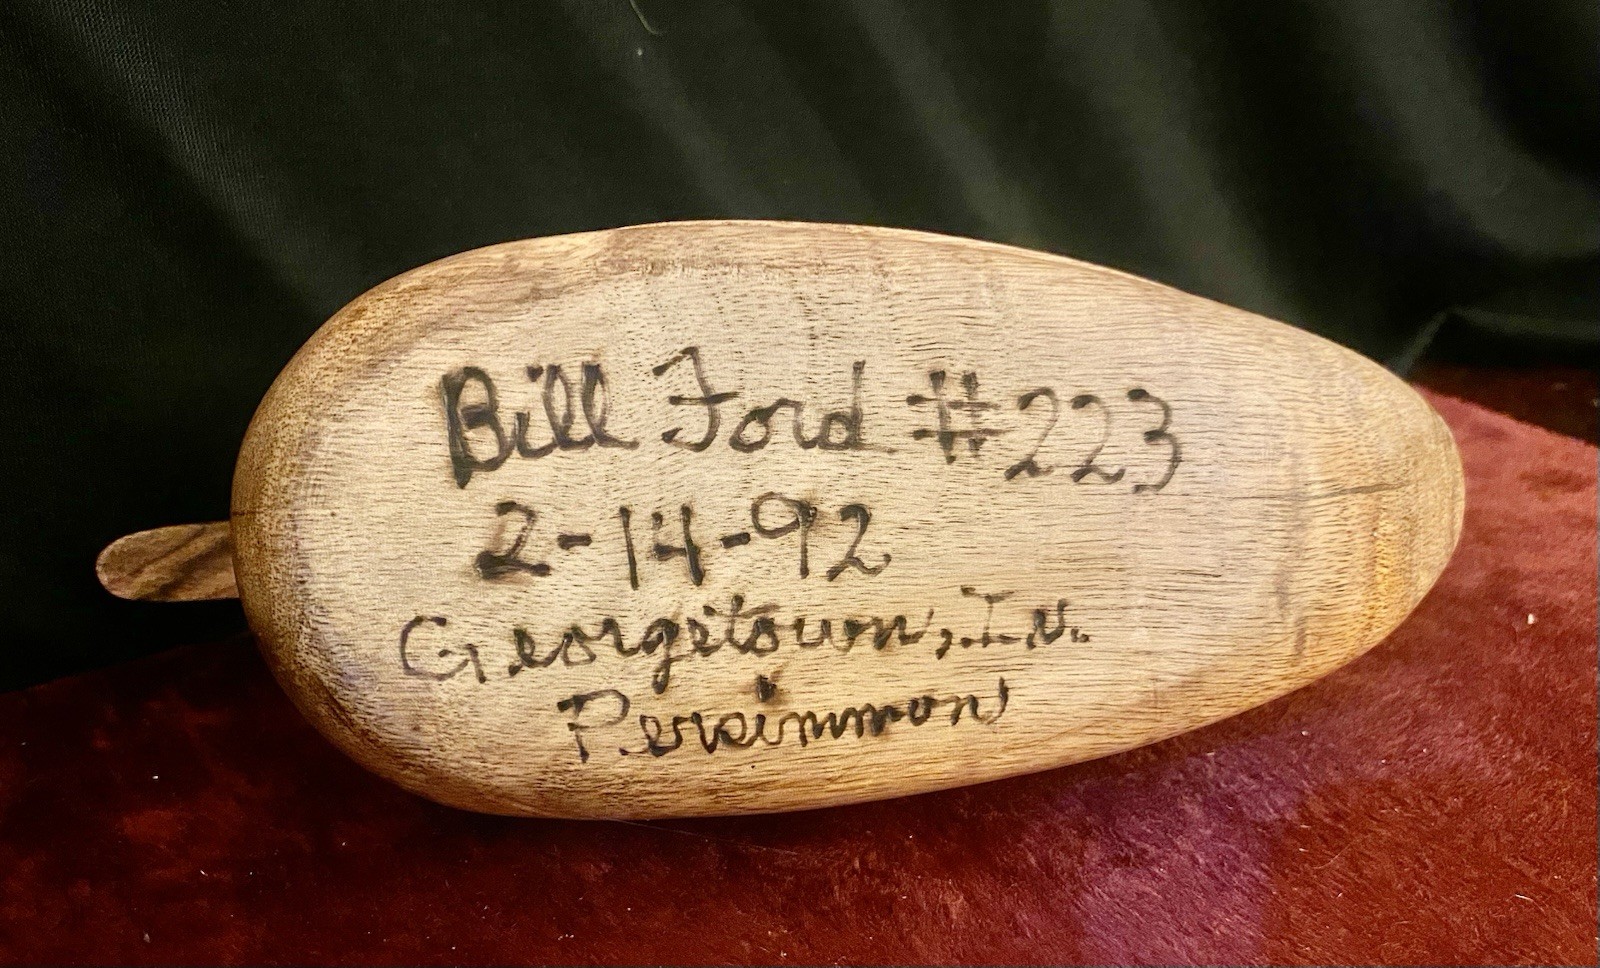 Bill Ford #223
2-14-92
Georgetown, IN.
Persimmon